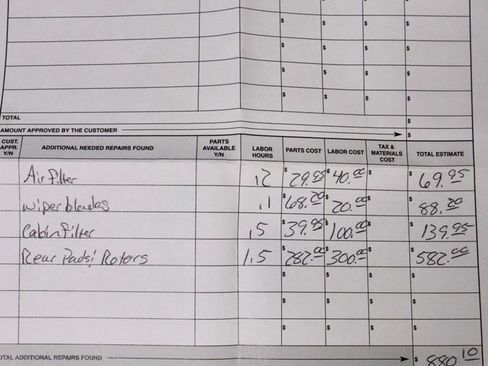 $ $ $
$ $ $
$ $ $
$ $ $
$ $ $
TOTAL $
AMOUNT APPROVED BY THE CUSTOMER $
CUST. APPR. Y/N ADDITIONAL NEEDED REPAIRS FOUND PARTS AVAILABLE Y/N LABOR HOURS PARTS COST LABOR COST TAX & MATERIALS COST TOTAL ESTIMATE
Air filter .2 $29.95 $40.00 $ $69.95
wiper blades .1 $68.20 $20.00 $ $88.20
Cabin filter .5 $39.95 $100.00 $ $139.95
Rear Pads/ Rotors 1.5 $282.00 $300.00 $ $582.00
$ $ $ $
$ $ $ $
$ $ $ $
OTAL ADDITIONAL REPAIRS FOUND $880.10